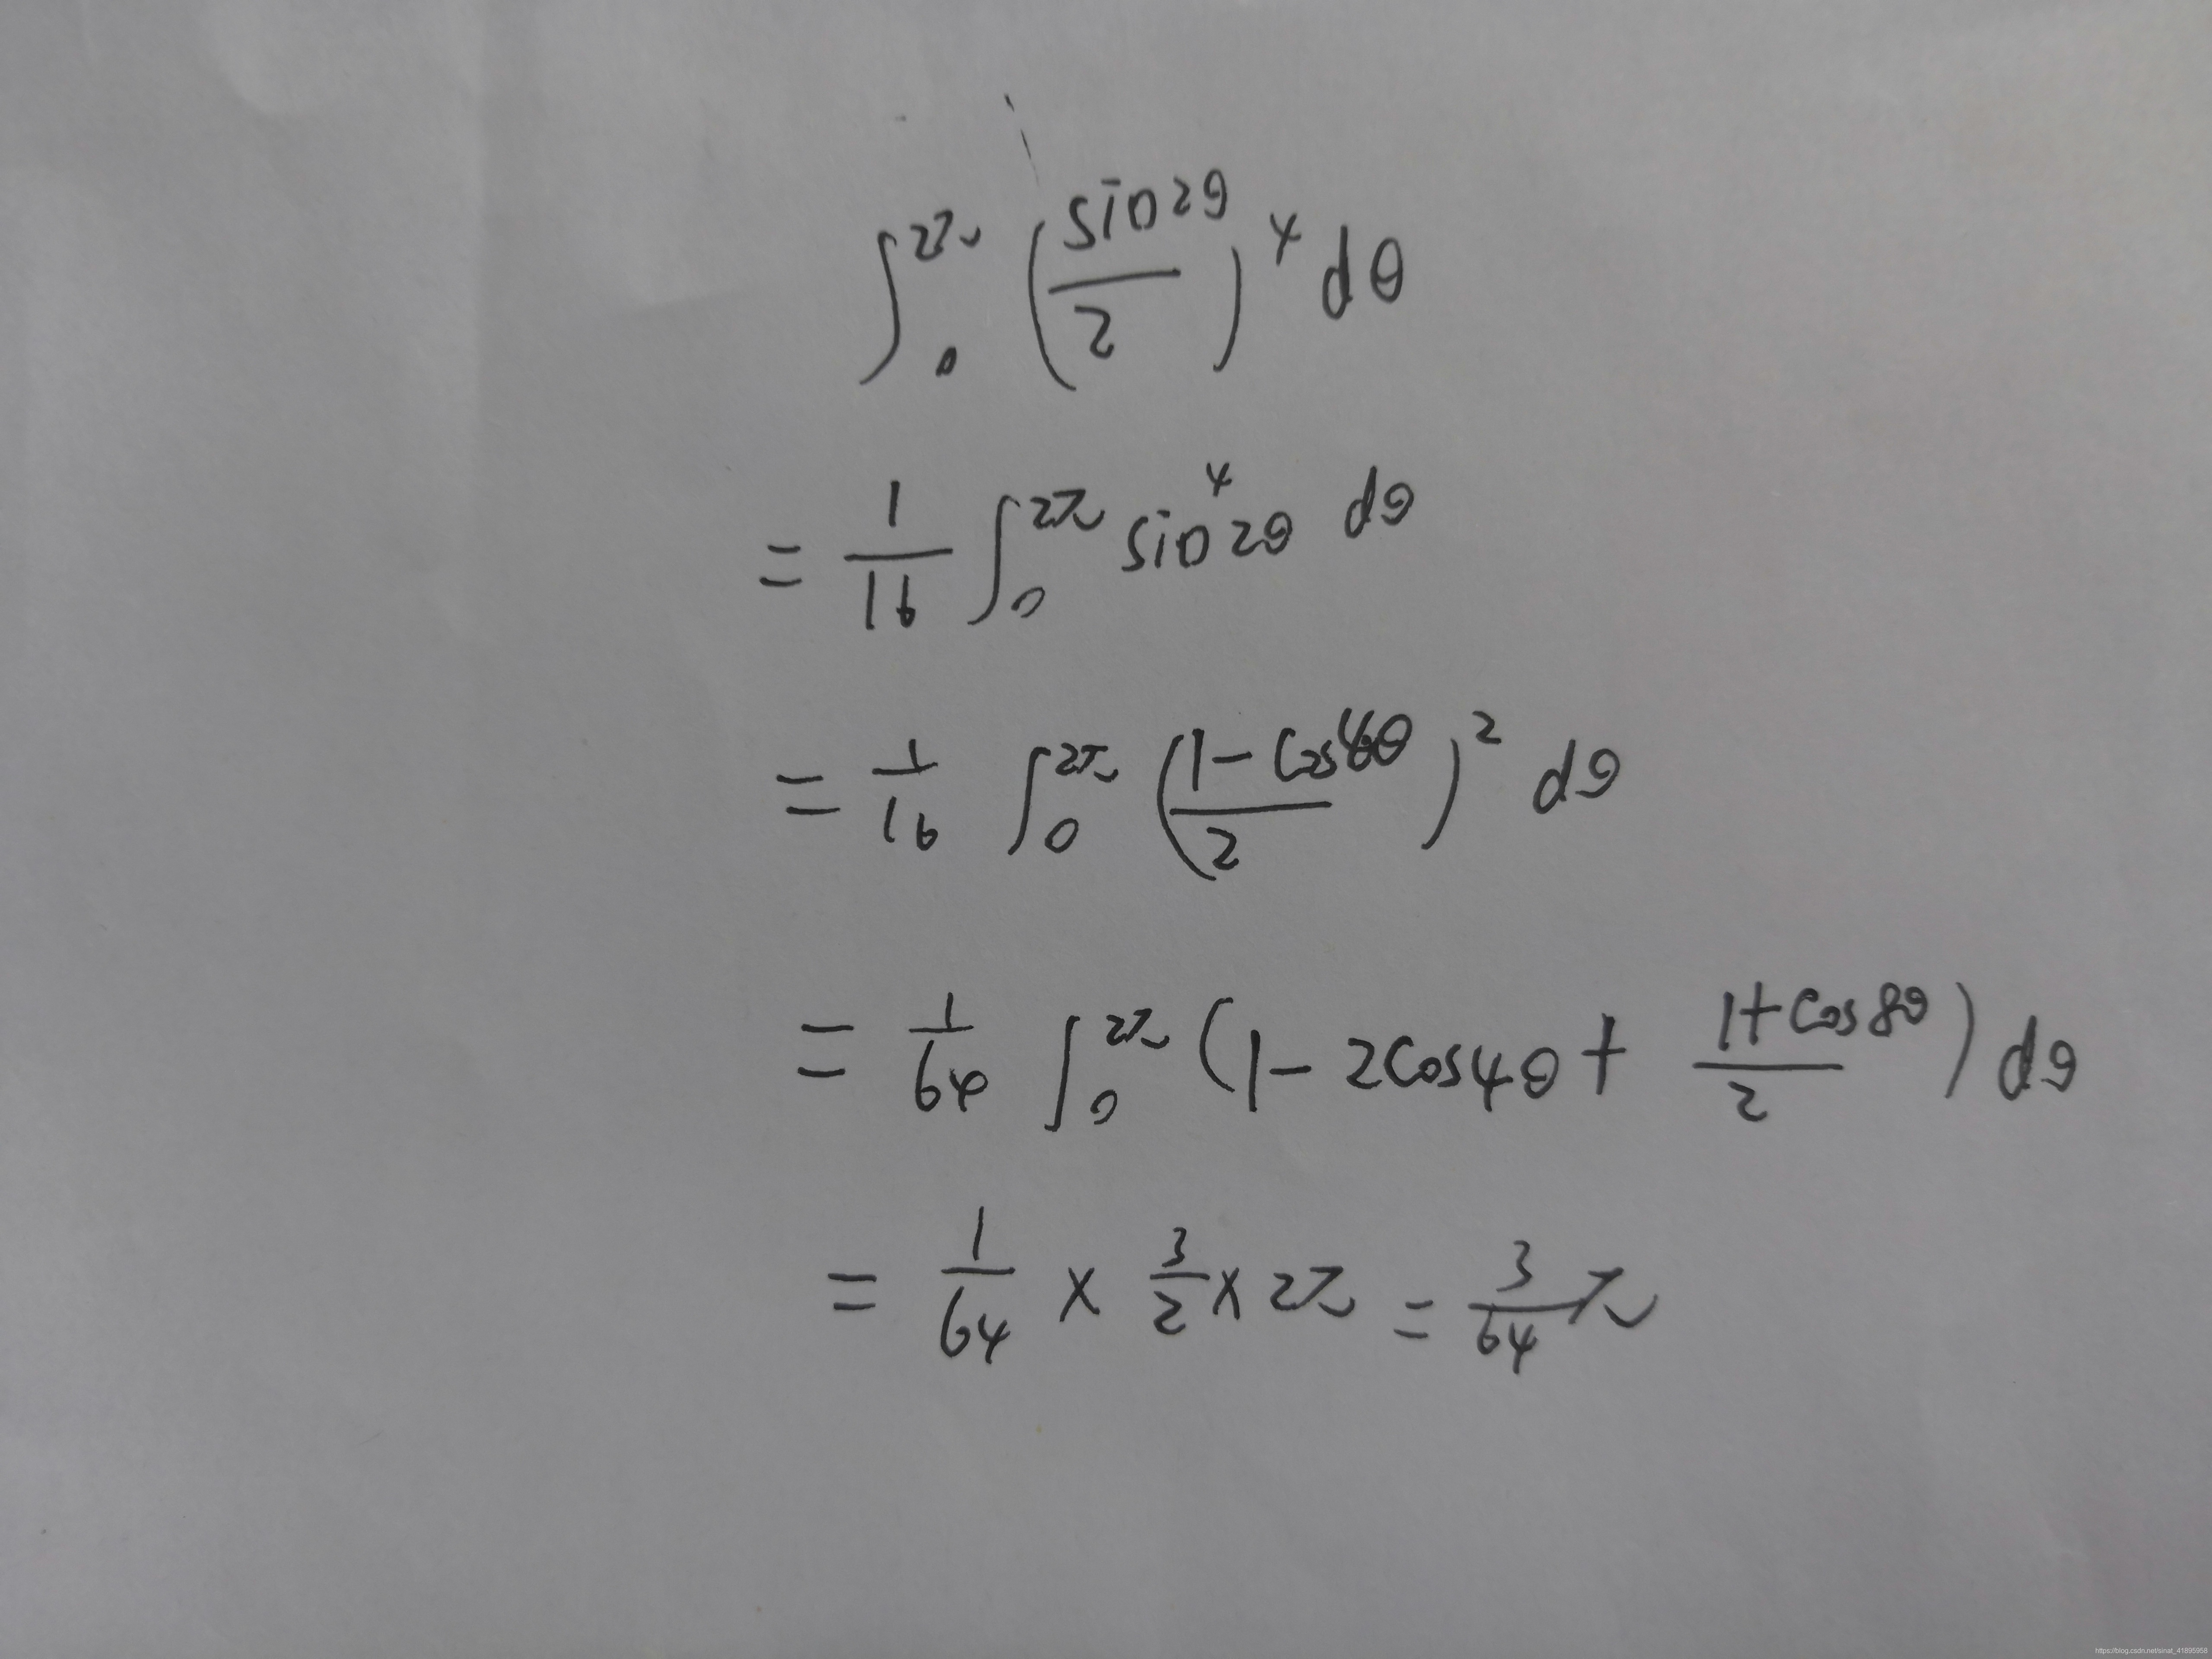 ∫₀^{2π} (sin2θ/2)⁴ dθ
= 1/16 ∫₀^{2π} sin⁴2θ dθ
= 1/16 ∫₀^{2π} ((1-cos4θ)/2)² dθ
= 1/64 ∫₀^{2π} (1-2cos4θ + (1+cos8θ)/2) dθ
= 1/64 × 3/2 × 2π = 3/64 π
https://blog.csdn.net/sinat_41895958